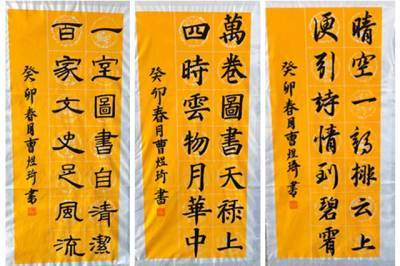 一室圖書自清潔
百家文史足風流
癸卯春月曹煜琦書
萬卷圖書天祿上
四時雲物月華中
癸卯春月曹煜琦書
晴空一鶴排云上
便引詩情到碧霄
癸卯春月曹煜琦書